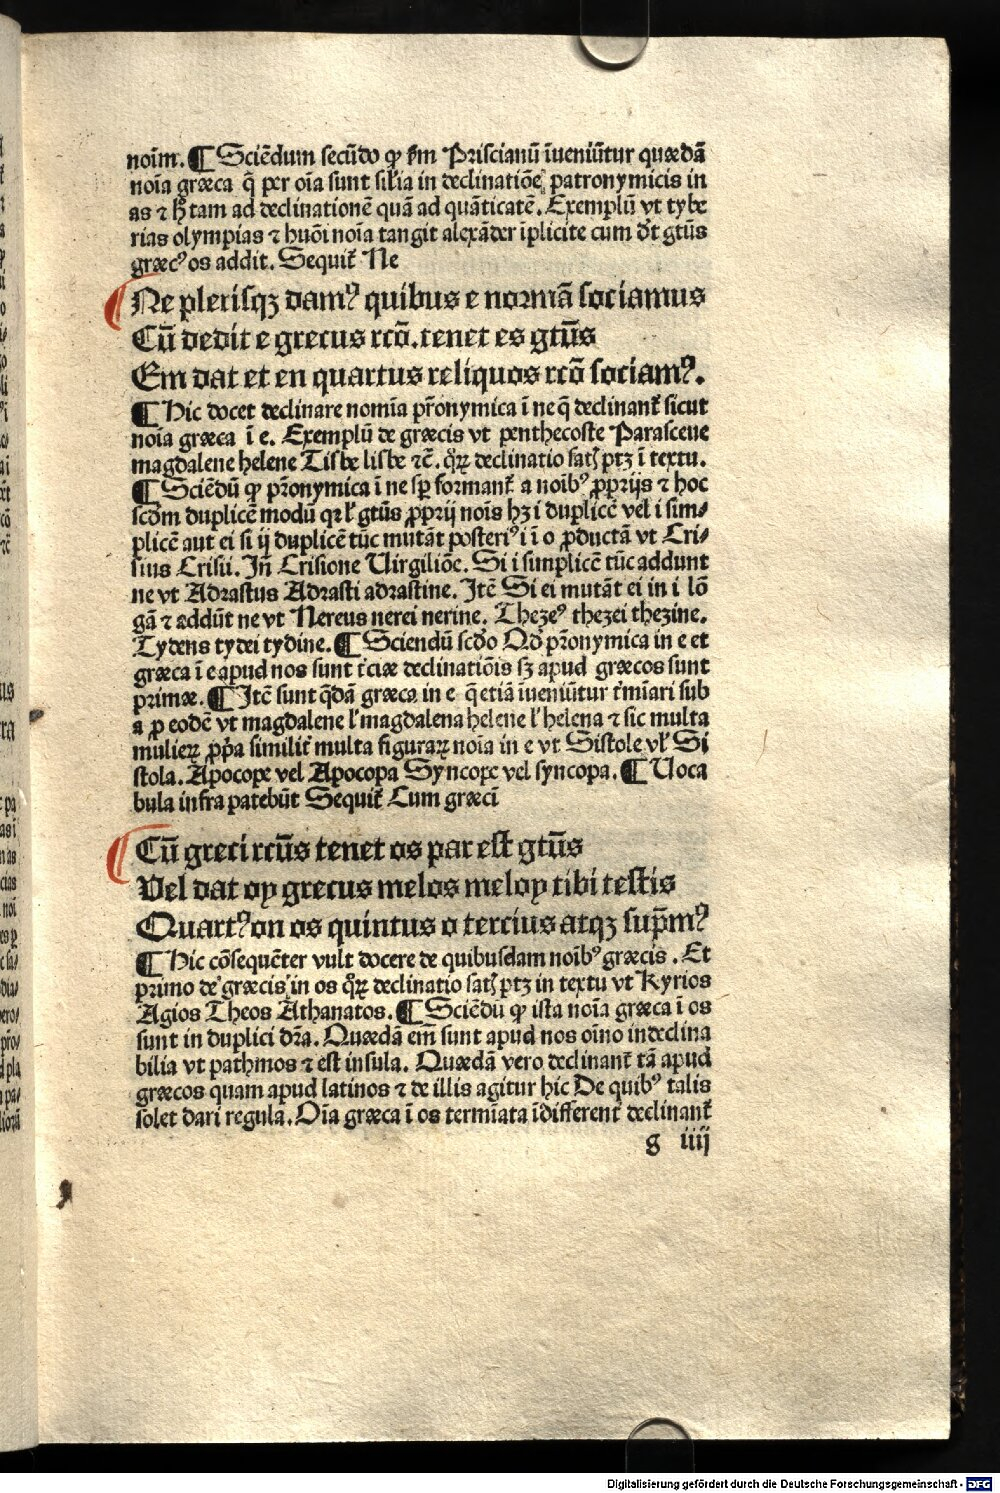 noīm. ¶ Sciēdum secūdo ꝙ ẜm Priscianū īueniūtur quædā
noīa græca q̄ per oīa sunt sīlia in declinatiōe patronymicis in
as ⁊ tam ad declinationē quā ad quāticatē. Exemplū vt tybe
rias olympias ⁊ huōi noīa tangit alexāder īplicite cum dt gtūs
græcꝰ os addit. Sequit Ne
Ne plerisqꝫ damꝰ quibus e normā sociamus
Cū dedit e grecus rcō. tenet es gtūs
Em dat et en quartus reliquos rcō sociamꝰ.
¶ Hic docet declinare nomīa pr̄onymica ī ne q̄ declinant sicut
noīa græca ī e. Exemplū de græcis vt penthecoste Parasceue
magdalene helene Tisbe lisbe ⁊c̄. declinatio ptꝫ ī textu.
¶ Sciēdū ꝙ pr̄onymica ī ne sꝑ formant a noībꝰ ꝓprijs ⁊ hoc
scdm duplicē modū qꝛ l gtūs ꝓprij noīs hꝫ i duplicē vel i sim⸗
plicē aut ei si ij duplicē tūc mutāt posteriꝰ i ī o ꝓductā vt Cri⸗
sius Crisii. In̄ Crisione Uirgiliōe. Si i simplicē tūc addunt
ne vt Adrastus Adrasti adrastine. Jtē Si ei mutāt ei in i lō
gā ⁊ addūt ne vt Nereus nerei nerine. Thezeꝰ thezei thezine.
Tydeus tydei tydine. ¶ Sciendū scdo Qd pr̄onymica in e et
græca ī e apud nos sunt tciæ declinatiōis sꝫ apud græcos sunt
primæ. ¶ Jtē sunt q̄dā græca in e q̄ etiā īueniūtur tmīari sub
a ꝓ eodē vt magdalene l magdalena helene l helena ⁊ sic multa
mulieꝝ ꝓpa similit multa figuraꝝ noīa in e vt Sistole vl Si
stola. Apocope vel Apocopa Syncope vel syncopa. ¶ Uoca
bula infra patebūt Sequit Cum græci
Cū greci rcūs tenet os par est gtūs
Vel dat oy grecus melos meloy tibi testis
Quartꝰ on os quintus o tercius atqꝫ sup̄mꝰ
¶ Hic cōsequēter vult docere de quibusdam noībꝰ græcis. Et
primo de græcis in os declinatio ptꝫ in textu vt Kyrios
Agios Theos Athanatos. ¶ Sciēdū ꝙ ista noīa græca ī os
sunt in duplici dr̄a. Quædā em̄ sunt apud nos oīno indeclina
bilia vt pathmos ⁊ est insula. Quædā vero declinant tā apud
græcos quam apud latinos ⁊ de illis agitur hic De quibꝰ talis
solet dari regula. Oīa græca ī os termīata īdifferent declinant
g iiij
Digitalisierung gefördert durch die Deutsche Forschungsgemeinschaft - DFG